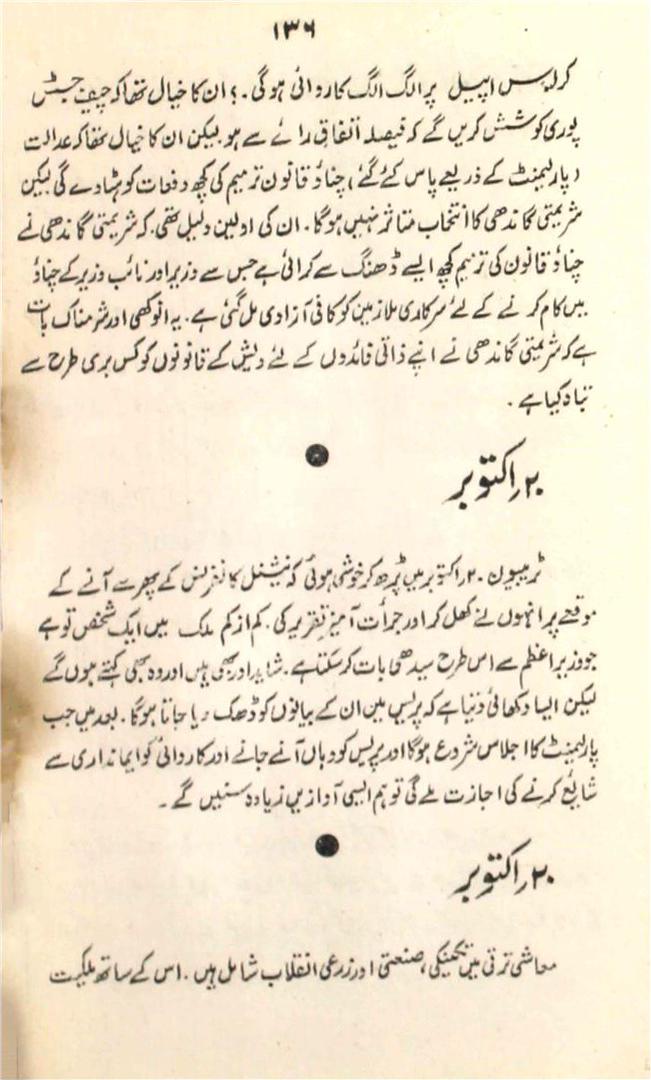 ۱۳۶
کرلپس اپیل پر الگ الگ کاروائی ہوگی۔؟ ان کا خیال تھا کہ چیف جسٹس
پوری کوشش کریں گے کہ فیصلہ اتفاق رائے سے ہو لیکن ان کا خیال تھا کہ عدالت
(پارلیمنٹ کے ذریعے پاس کئے گئے) چناؤ قانون ترمیم کی کچھ دفعات کو ہٹا دے گی لیکن
شریمتی گاندھی کا انتخاب متاثر نہیں ہوگا۔ ان کی اولین دلیل تھی۔ کہ شریمتی گاندھی نے
چناؤ قانون کی ترمیم کچھ ایسے ڈھنگ سے کرائی ہے جس سے وزیر اور نائب وزیر کے چناؤ
میں کام کرنے کے لئے سرکاری ملازمین کو کافی آزادی مل گئی ہے۔ یہ انوکھی اور شرمناک بات
ہے کہ شریمتی گاندھی نے اپنے ذاتی فائدوں کے لئے دیش کے قانونوں کو کس بری طرح سے
تباہ کیا ہے۔
۲۰ اکتوبر
ٹریبیون ۔ ۲۰ اکتوبر میں پڑھ کر خوشی ہوئی کہ نیشنل کانفرنس کے پھر سے آنے کے
موقعے پر انہوں نے کھل کر اور جرأت آمیز تقریر کی۔ کم از کم ملک میں ایک شخص تو ہے
جو وزیر اعظم سے اس طرح سیدھی بات کر سکتا ہے۔ شاید اور بھی ہیں اور وہ بھی کہتے ہوں گے
لیکن ایسا دکھائی دیتا ہے کہ پریس میں ان کے بیانوں کو ڈھک دیا جاتا ہوگا۔ بعد میں جب
پارلیمنٹ کا اجلاس شروع ہوگا اور پریس کو وہاں آنے جانے اور کاروائی کو ایمانداری سے
شایع کرنے کی اجازت ملے گی تو ہم ایسی آوازیں زیادہ سنیں گے۔
۲۰ اکتوبر
معاشی ترقی میں تکنیکی، صنعتی اور زرعی انقلاب شامل ہیں۔ اس کے ساتھ ملکیت